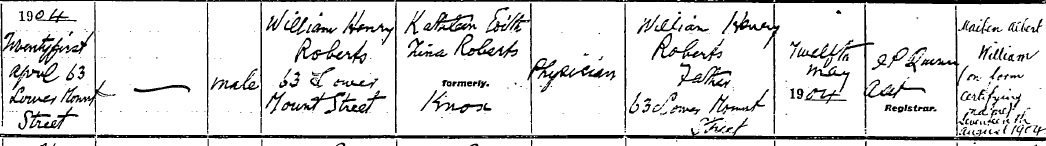 1904
Twentyfirst
April 63
Lower Mount
Street
—
male
William Henry
Roberts
63 Lower
Mount Street
Kathleen Edith
Tina Roberts
Formerly.
Knox
Physician
William Henry
Roberts
Father
63 Lower Mount
Street
Twelfth
May
1904
Registrar.
Albert
William
on form
certifying
seventeenth
august 1904